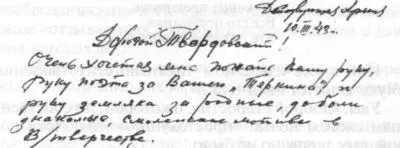 Действующая Армия
10.III.43г.
Дорогой Твардовский!
Очень хочется мне пожать Вашу руку,
руку поэта за Вашего „Теркина“, и
руку земляка за родные, до боли
знакомые, смоленские мотивы в
В/творчестве.